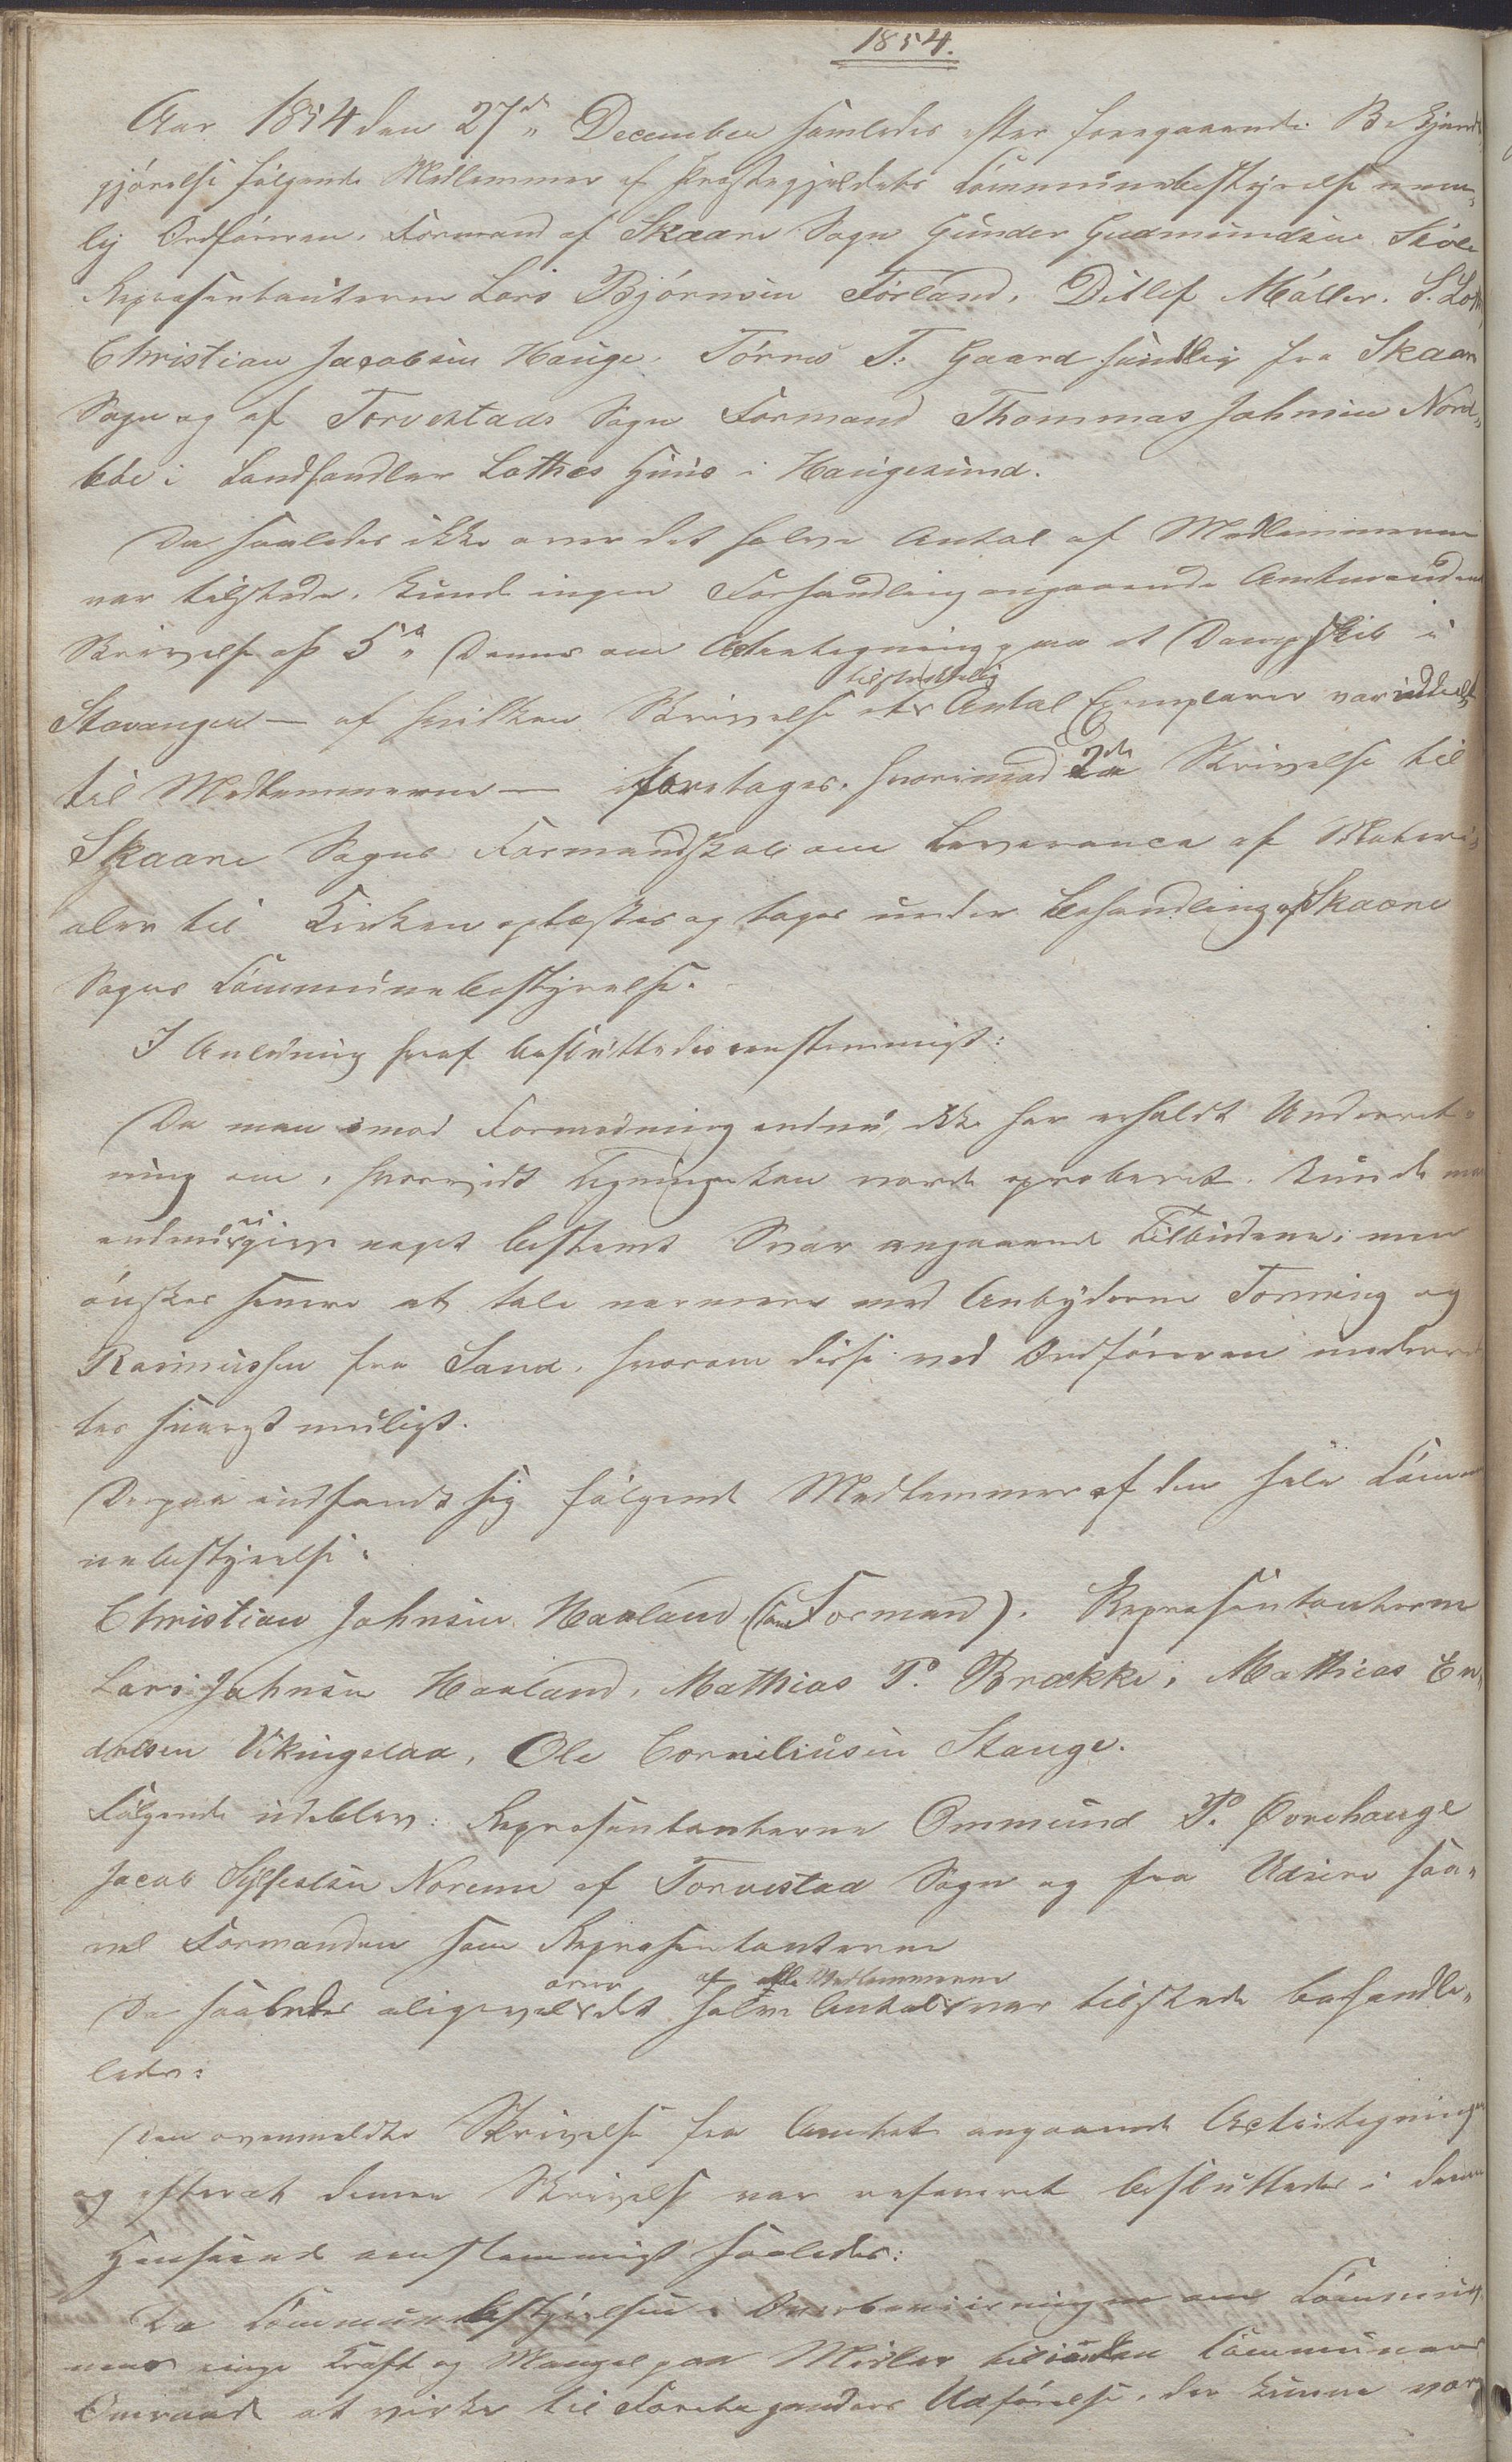 1854.
Aar 1854 den 27de December samledes efter foregaaende Bekjendt-
gjørelse følgende Medlemmer af Præstegjeldets Communebestyrelse nem-
lig Ordføreren, Formand af Skaare Sogn Gunder Gudmundsen
Repræsentanterne Lars Bjørnsen Førland, Ditlef Møller, S.
Christian Jacobsen Hauge, Tørres T. Gaard samtlige fra Skaare
Sogn og af Torvestads Sogn Formand Thommas Johnsen Nord-
bde i Landhandler Lothes Huus i Haugesund.
Da saaledes ikke over det halve Antal af Medlemmerne
var tilstede, kunde ingen Forhandling angaaende Amtmandens
Skrivelse af 5te Dennes om Actietegning paa et Dampskib i
tilstrækkelig
Stavanger – af hvilken Skrivelse et Antal Exemplarer var uddeelt
til Medlemmerne – foretages, hvorimod 2de Skrivelse til
Skaare Sogns Formandskab om Leverance af Materi-
aler til Kirken oplæstes og toges under Behandling af Skaare
Sogns Communebestyrelse.
I Anledning heraf besluttedes eenstemmigt:
Da man imod Formodning endnu ikke har erholdt Underret-
ning om, hvorvidt Tegningen kan vorde approberet, kunde man
ei
endnu give noget bestemt Svar angaaende Tilbudene; men
ønsker senere at tale nærmere med Anbyderne Tonning og
Rasmussen fra Sand, hvorom disse ved Ordføreren underret-
tes snarest muligt.
Derpaa indfandt sig følgende Medlemmer af den hele Commu-
nebestyrelse:
Christian Johnsen Haaland, (som Formand). Repræsentanterne
Lars Johnsen Haaland, Mathias P. Brække, Mathias En-
dresen Vikingstad, Ole Corneliusen Stange.
Følgende udebleve: Repræsentanterne Ommund P. Øvrehauge
Jacob Sylfestsen Noreim af Torvestad Sogn og fra Udsire saa-
vel Formanden som Repræsentanterne
over af alle Medlemmerne
Da saaledes aligevel det halve Antal var tilstede behandle-
ledes:
Den ovenmeldte Skrivelse fra Amtet angaaende Actietegningen
og efterat denne Skrivelse var refereret besluttedes i denne
Henseende eenstemmigt saaledes:
Da Communebestyrelsen i Overbeviisningen om Commu-
nens ringe Kraft og Mangel paa Midler til inden Communens
Omraade at virke til Foretagenders Udførelse, der kunne være